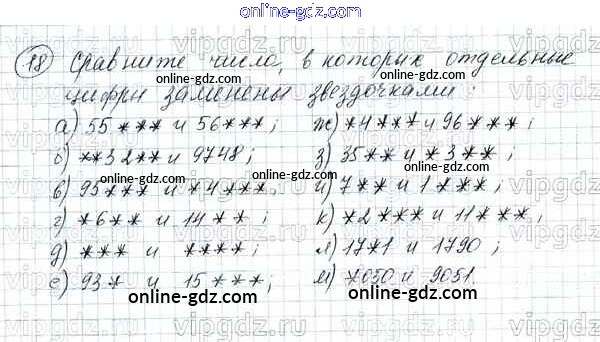 online-gdz.com
18 Сравните числа, в которых отдельные
online-gdz.com
цифры заменены звездочками:
а) 55*** и 56***; ж) *4*** и 96***;
б) **32** и 9748; з) 35** и *3**;
в) 95*** и *4***. и) 7** и 1***;
г) *6** и 14**; к) *2*** и 11***,
д) *** и ****; л) 17*1 и 1790;
е) 93* и 15***; м) *050 и 9051.
online-gdz.com
online-gdz.com
online-gdz.com
vipgdz.ru